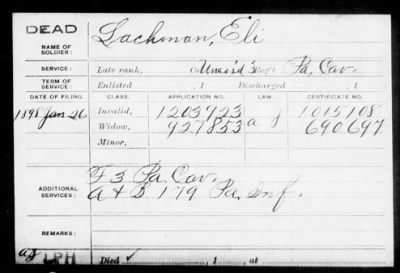 DEAD
NAME OF SOLDIER: Lachman, Eli
SERVICE: Late rank, Co. Unas'd 3 Reg't Pa. Cav.
TERM OF SERVICE: Enlisted , 1 Discharged , 1
DATE OF FILING. CLASS. APPLICATION NO. LAW. CERTIFICATE NO.
1898 Jan. 26 Invalid, 1203923 1015108
Widow, 927853 a 690697
Minor,
ADDITIONAL SERVICES: F 3 Pa. Cav.
A & B 179 Pa. Inf.
REMARKS:
LPH Died , 1 , at